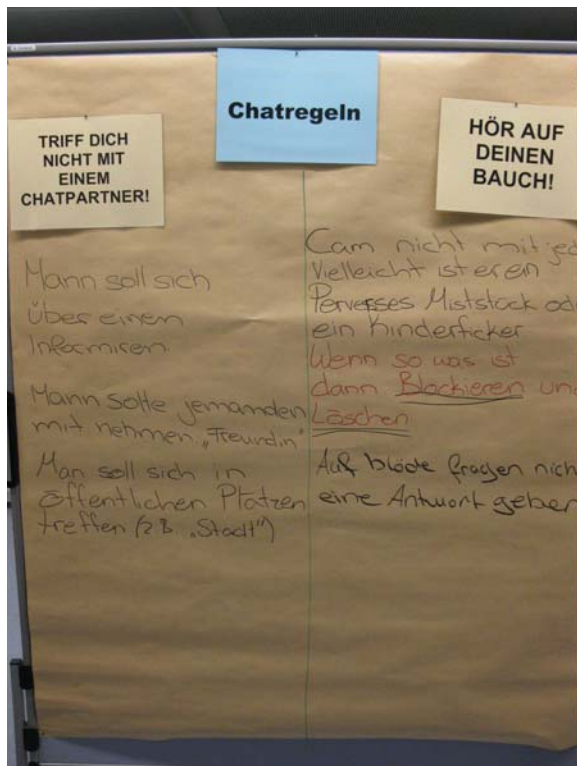 Chatregeln
TRIFF DICH
NICHT MIT
EINEM
CHATPARTNER!
Mann soll sich
über einen
Informiren
Mann solte jemanden
mit nehmen „Freundin"
Man soll sich in
öffentlichen Plätzen
treffen (z.B. „Stadt")
HÖR AUF
DEINEN
BAUCH!
Cam nicht mit jed
Vielleicht ist er ein
Perverses Miststück od
ein Kinderficker
Wenn so was ist
dann Blockieren und
Löschen
Auf blöde fragen nich
eine Antwort geben